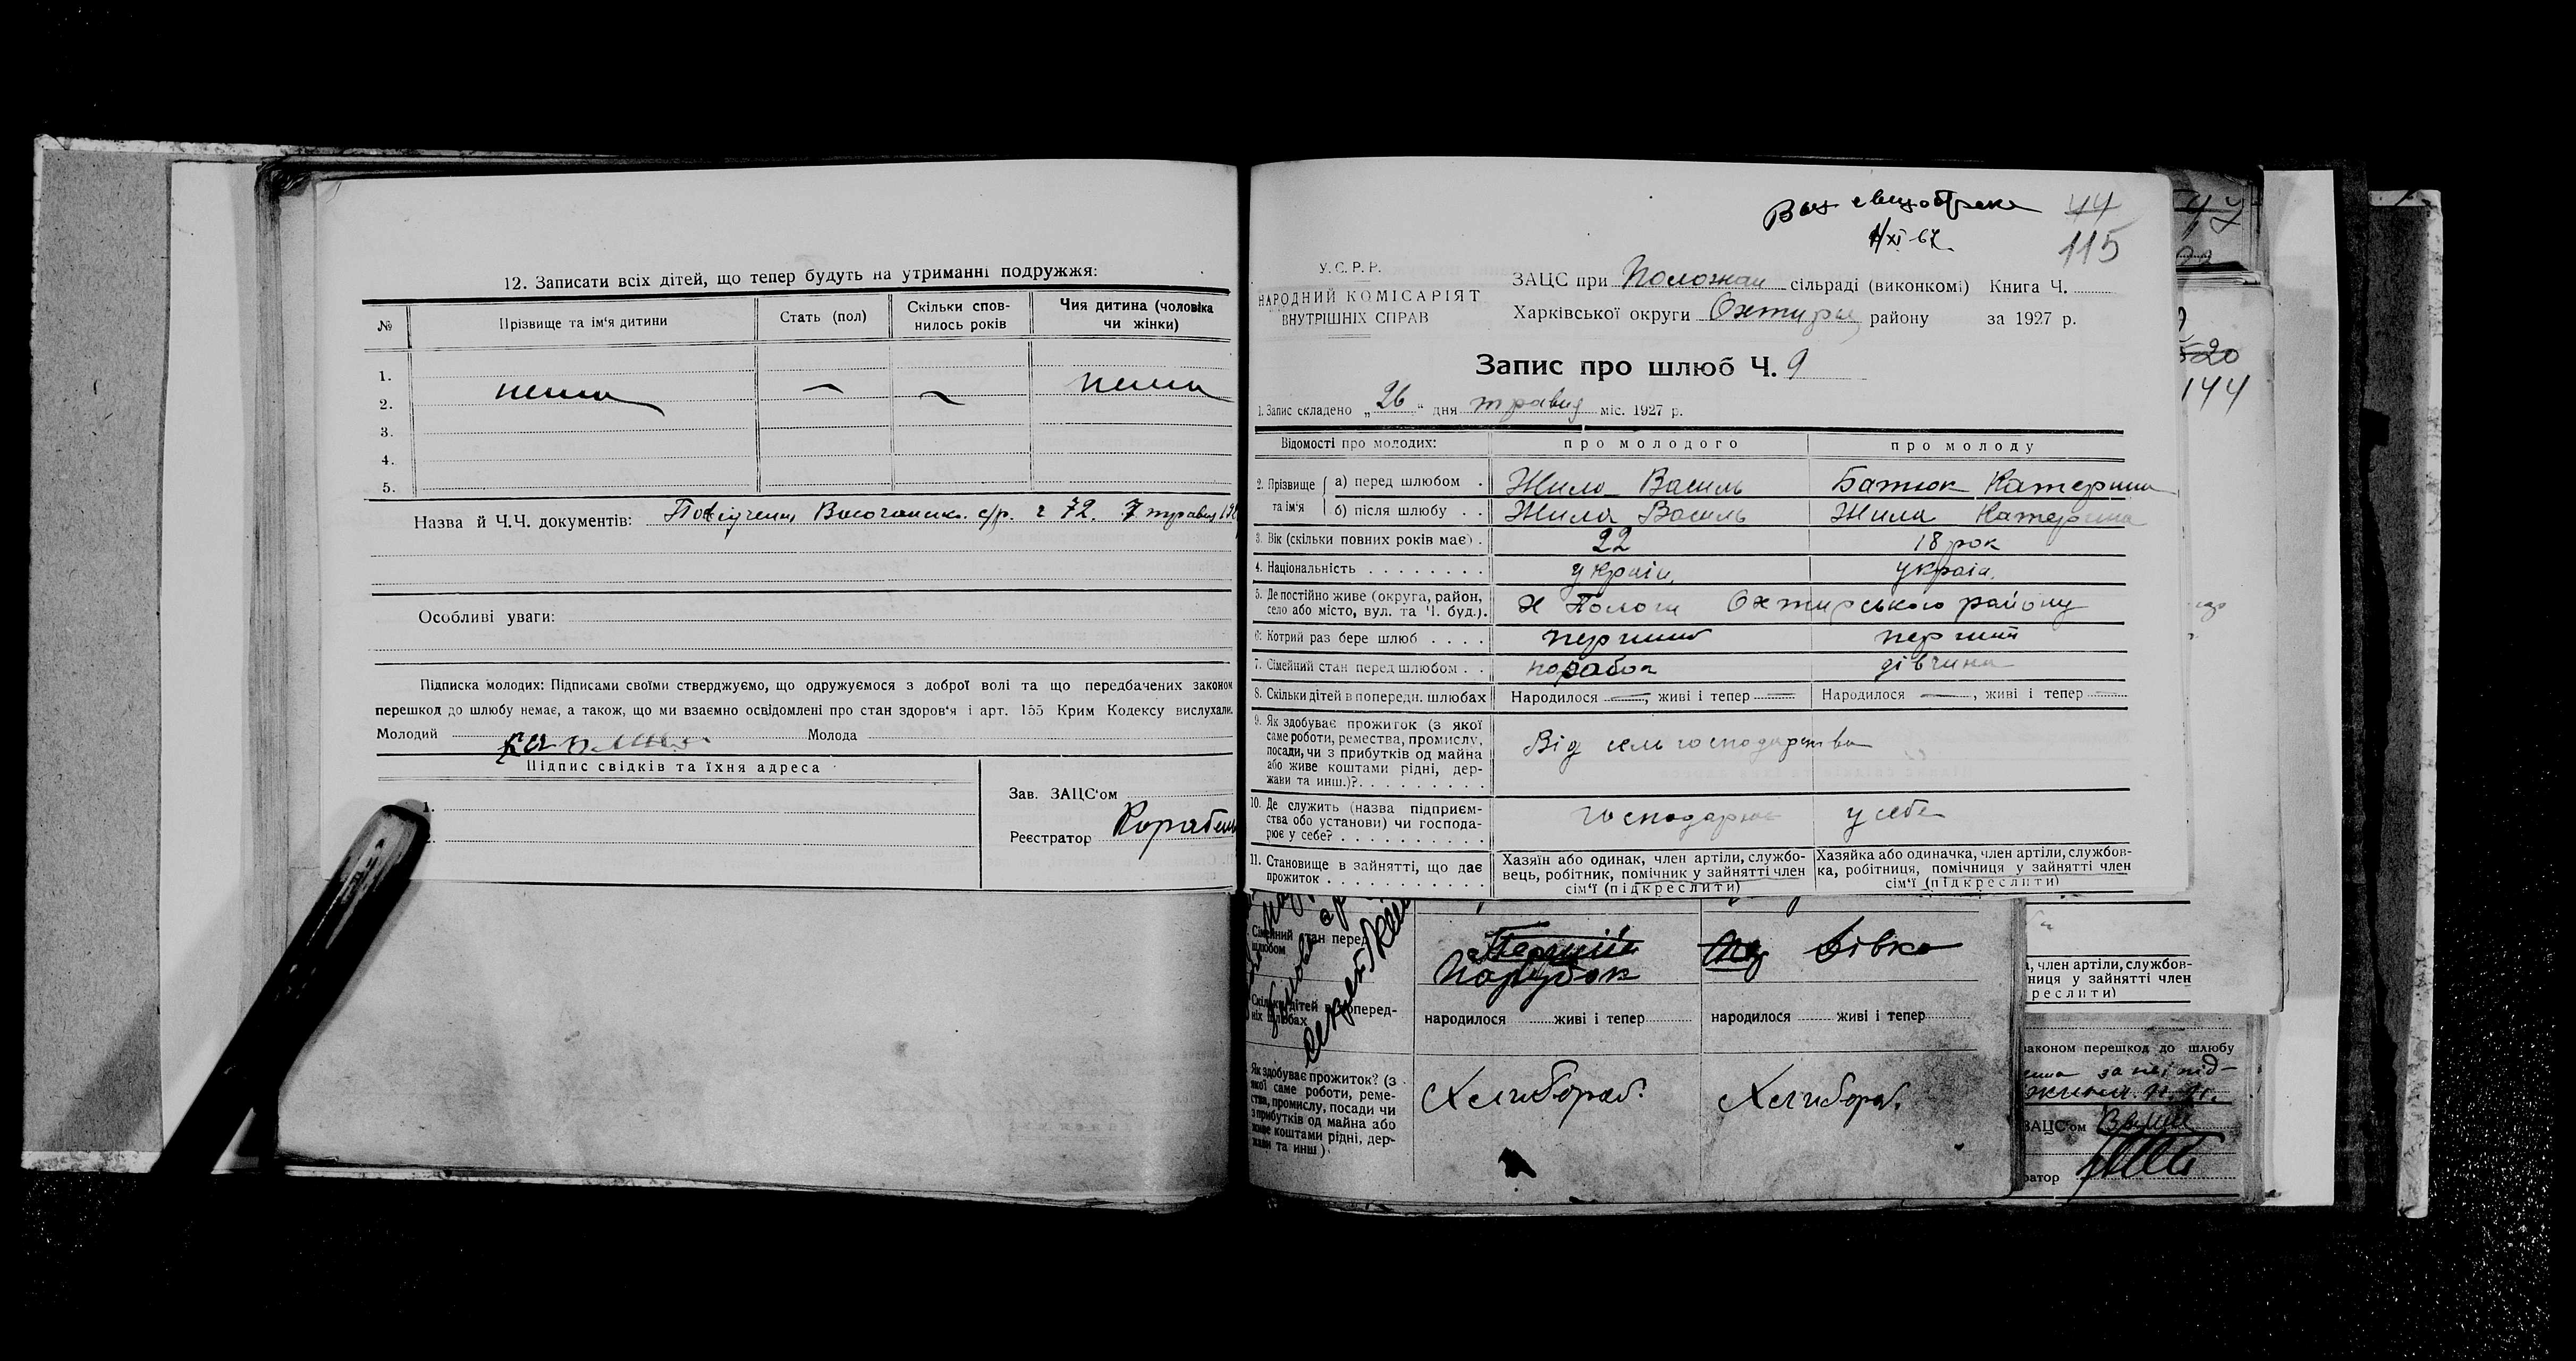 12. Записати всіх дітей, що тепер будуть на утриманні подружжя:
№ Прізвище та ім'я дитини Стать (пол) Скільки спов-нилось років Чия дитина (чоловіка чи жінки)
1.
2. нема — — нема
3.
4.
5.
Назва й Ч.Ч. документів: с/р. ч 72. 7 травня
Особливі уваги:
Підписка молодих: Підписами своїми стверджуємо, що одружуємося з доброї волі та що передбачених законом
перешкод до шлюбу немає, а також, що ми взаємно освідомлені про стан здоров'я і арт. 155 Крим Кодексу вислухали.
Молодий Молода
Підпис свідків та їхня адреса
1.
Зав. ЗАЦС'ом
Реєстратор
44
1/XI-67
115
У.С.Р.Р.
НАРОДНИЙ КОМІСАРІЯТ
ВНУТРІШНІХ СПРАВ
ЗАЦС при Положан сільраді (виконкомі) Книга Ч.
Харківської округи Охтирськ району за 1927 р.
Запис про шлюб Ч. 9
1. Запис складено „26" дня травня міс. 1927 р.
Відомості про молодих: про молодого про молоду
2. Прізвище та ім'я а) перед шлюбом Жила Василь Батюк Катерина
б) після шлюбу Жила Василь Жила Катерина
3. Вік (скільки повних років має) 22 18 рок
4. Національність україн. україн.
5. Де постійно живе (округа, район, село або місто, вул. та Ч. буд.) Х Пологи Охтирського району
6. Котрий раз бере шлюб перший перший
7. Сімейний стан перед шлюбом парабок дівчина
8. Скільки дітей в попередн. шлюбах Народилося —, живі і тепер — Народилося —, живі і тепер —
9. Як здобуває прожиток (з якої
саме роботи, ремества, промислу,
посади, чи з прибутків од майна
або живе коштами рідні, дер-
жави та инш.)?
Від сель господарства
10. Де служить (назва підприєм-
ства обо установи) чи господа-
рює у себе?
господарює у себе
11. Становище в зайнятті, що дає
прожиток
Хазяїн або одинак, член артіли, службо-
вець, робітник, помічник у зайнятті член
сім'ї (підкреслити)
Хазяйка або одиначка, член артіли, службов-
ка, робітниця, помічниця у зайнятті член
сім'ї (підкреслити)
Сімейний стан перед шлюбом Парубок Дівка
Скільки дітей в попередніх шлюбах народилося живі і тепер народилося живі і тепер
Як здобуває прожиток? (з
якої саме роботи, реме-
ства, промислу, посади чи
з прибутків од майна або
живе коштами рідні, дер-
жави та инш)
Хлибораб. Хлибора.
144
, член артіли, службов-
ниця у зайнятті член
реслити)
законом перешкод до шлюбу
ЗАЦС'ом
ратор